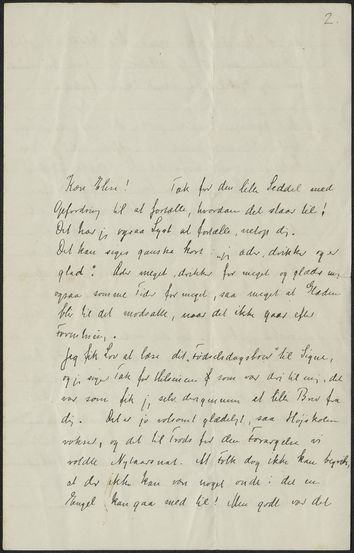 2.
Kære Elise! Tak for den lille Seddel med
Opfordring til at fortælle, hvordan det staar til!
Det har jeg ogsaa Lyst at fortælle, netop dig.
Det kan siges ganske kort: "jeg æder, drikker og er
glad". Æder meget, drikker for meget og glæder mig
ogsaa somme Tider for meget, saa meget at Glæden
blir til det modsatte, naar det ikke gaar efter
Jeg fik Lov at læse dit "Fødselsdagsbrev" til Signe,
og jeg siger Tak for Hilsenen som var deri til mig, det
var som fik jeg selv et lille Brev fra
dig. Det er jo voldsomt glædeligt, saa Højskolen
vokser, og det til Trods for den Forargelse vi
voldte Nytaarsnat. At Folk dog ikke kan begribe,
at der ikke kan være noget ondt i det en
Engel kan gaa med til! Men godt var det